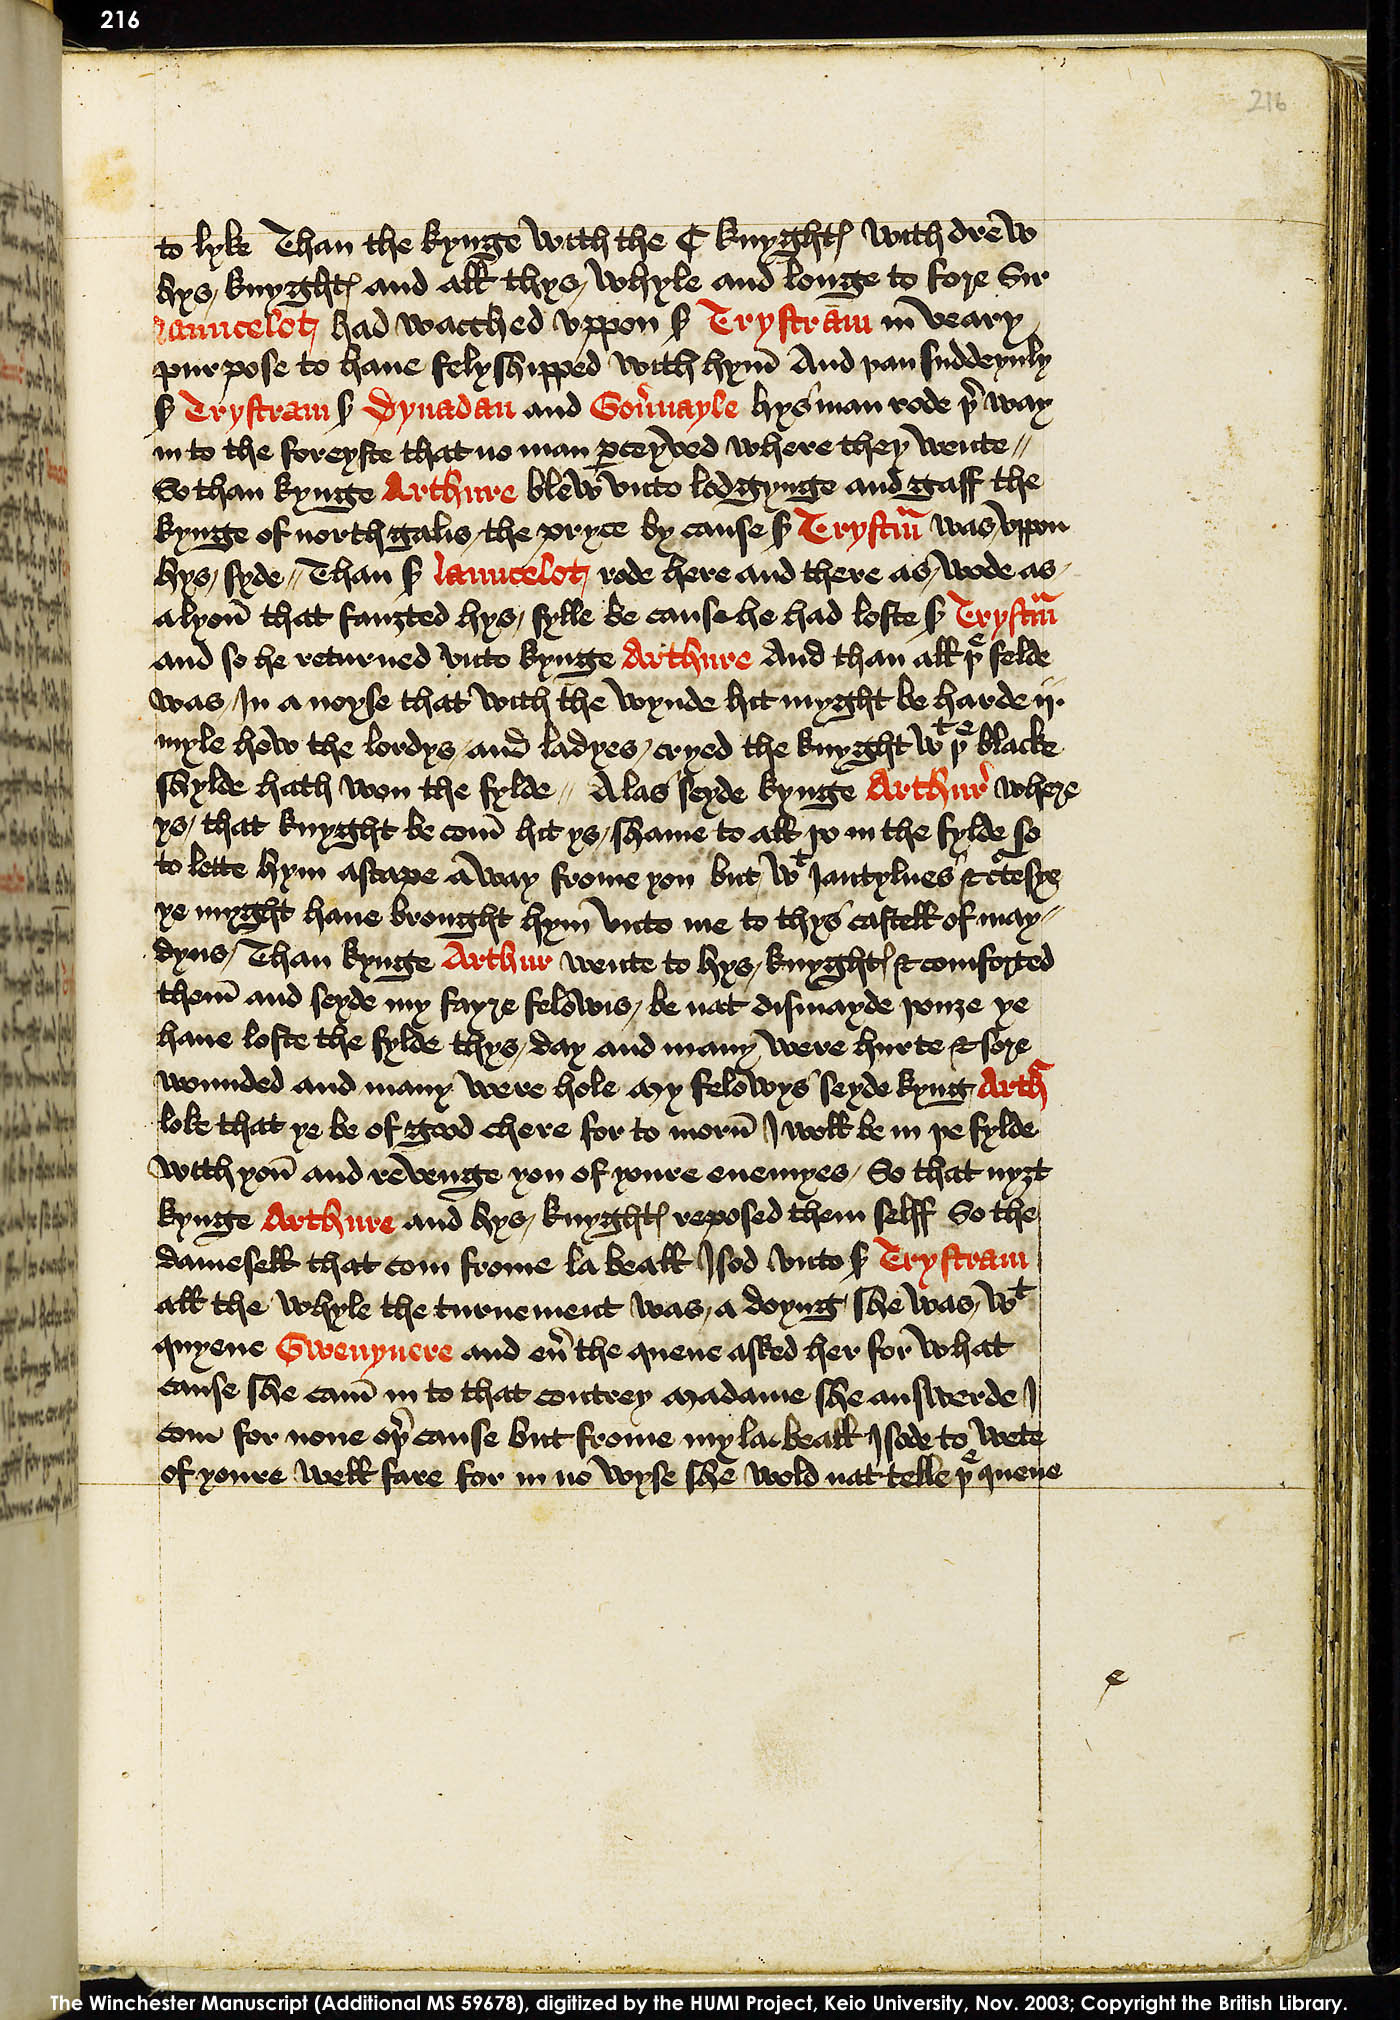 216
216
to lyke Than the kynge with the C knyghtꝭ with drew
hys knyghtꝭ and all thys whyle and longe to fore Sir
launcelot had wacched vppon ẜ Trystram in veary
purpose to haue felyshipped with hym̄ And þan suddeynly
ẜ Trystram ẜ Dynadan and Gou̾nayle hys man rode þ̾ way
in to the foreyste that no man ꝑceyved where they wente //
So than kynge Arthure blew vnto lodgynge and gaff the
kynge of north galis the pryce by cause ẜ Trystm̄ was vppon
hys syde // Than ẜ launcelot rode here and there as wode as
a lyon̄ that fauȝted hys fylle be cause he had loste ẜ Trystm̄
and so he returned vnto kynge Arthure And than all þͤ felde
was In a noyse that with the wynde hit myght be harde ij.
myle how the lordys and ladyes cryed the knyght wᵗ þͤ blacke
shylde hath won the fylde // Alas seyde kynge Arthur̾ where
ys that knyght be com̄ hit ys shame to all þo in the fylde so
to lette hym ascape away frome you but wᵗ Jantylnes & c̾tesye
ye myght haue brought hym vnto me to thys castell of may //
dyns / Than kynge Arthur wente to hys knyghtꝭ & comforted
them̄ and seyde my fayre felowis be nat dismayde þouȝe ye
haue loste the fylde thys day and many were hurte & sore
wounded and many were hole My felowys seyde kyng Arth̾
loke that ye be of good chere for to morn̄ I woll be in þe fylde
with you̅ and revenge you of youre enemyes / So that nyȝt
kynge Arthure and hys knyghtꝭ reposed them selff So the
damesell that com frome la beall Isod vnto ẜ Trystram
all the whyle the turnement was a doyng she was wᵗ
quyene Gwenyuere and eu̾ the quene asked her for what
cause she cam̄ in to that contrey Madame she answerde I
com for none oþ̾ cause but frome my la beall Isode to wete
of youre well fare for in no wyse she wold nat telle þͤ quene
e
The Winchester Manuscript (Additional MS 59678), digitized by the HUMI Project, Keio University, Nov. 2003; Copyright the British Library.